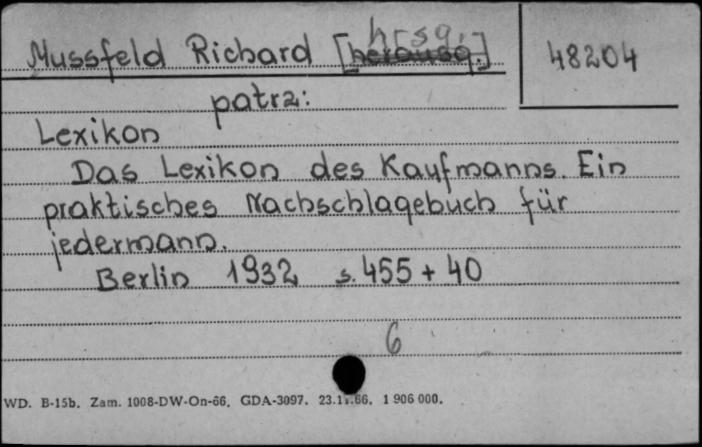 Mussfeld Richard [hrsg.] 48204
patrz:
Lexikon
Das Lexikon des Kaufmanns. Ein
praktisches Nachschlagebuch für
jedermann.
Berlin 1932 s. 455 + 40
6
WD. B-15b. Zam. 1008-DW-On-66. GDA-3097. 23.11.66. 1 906 000.